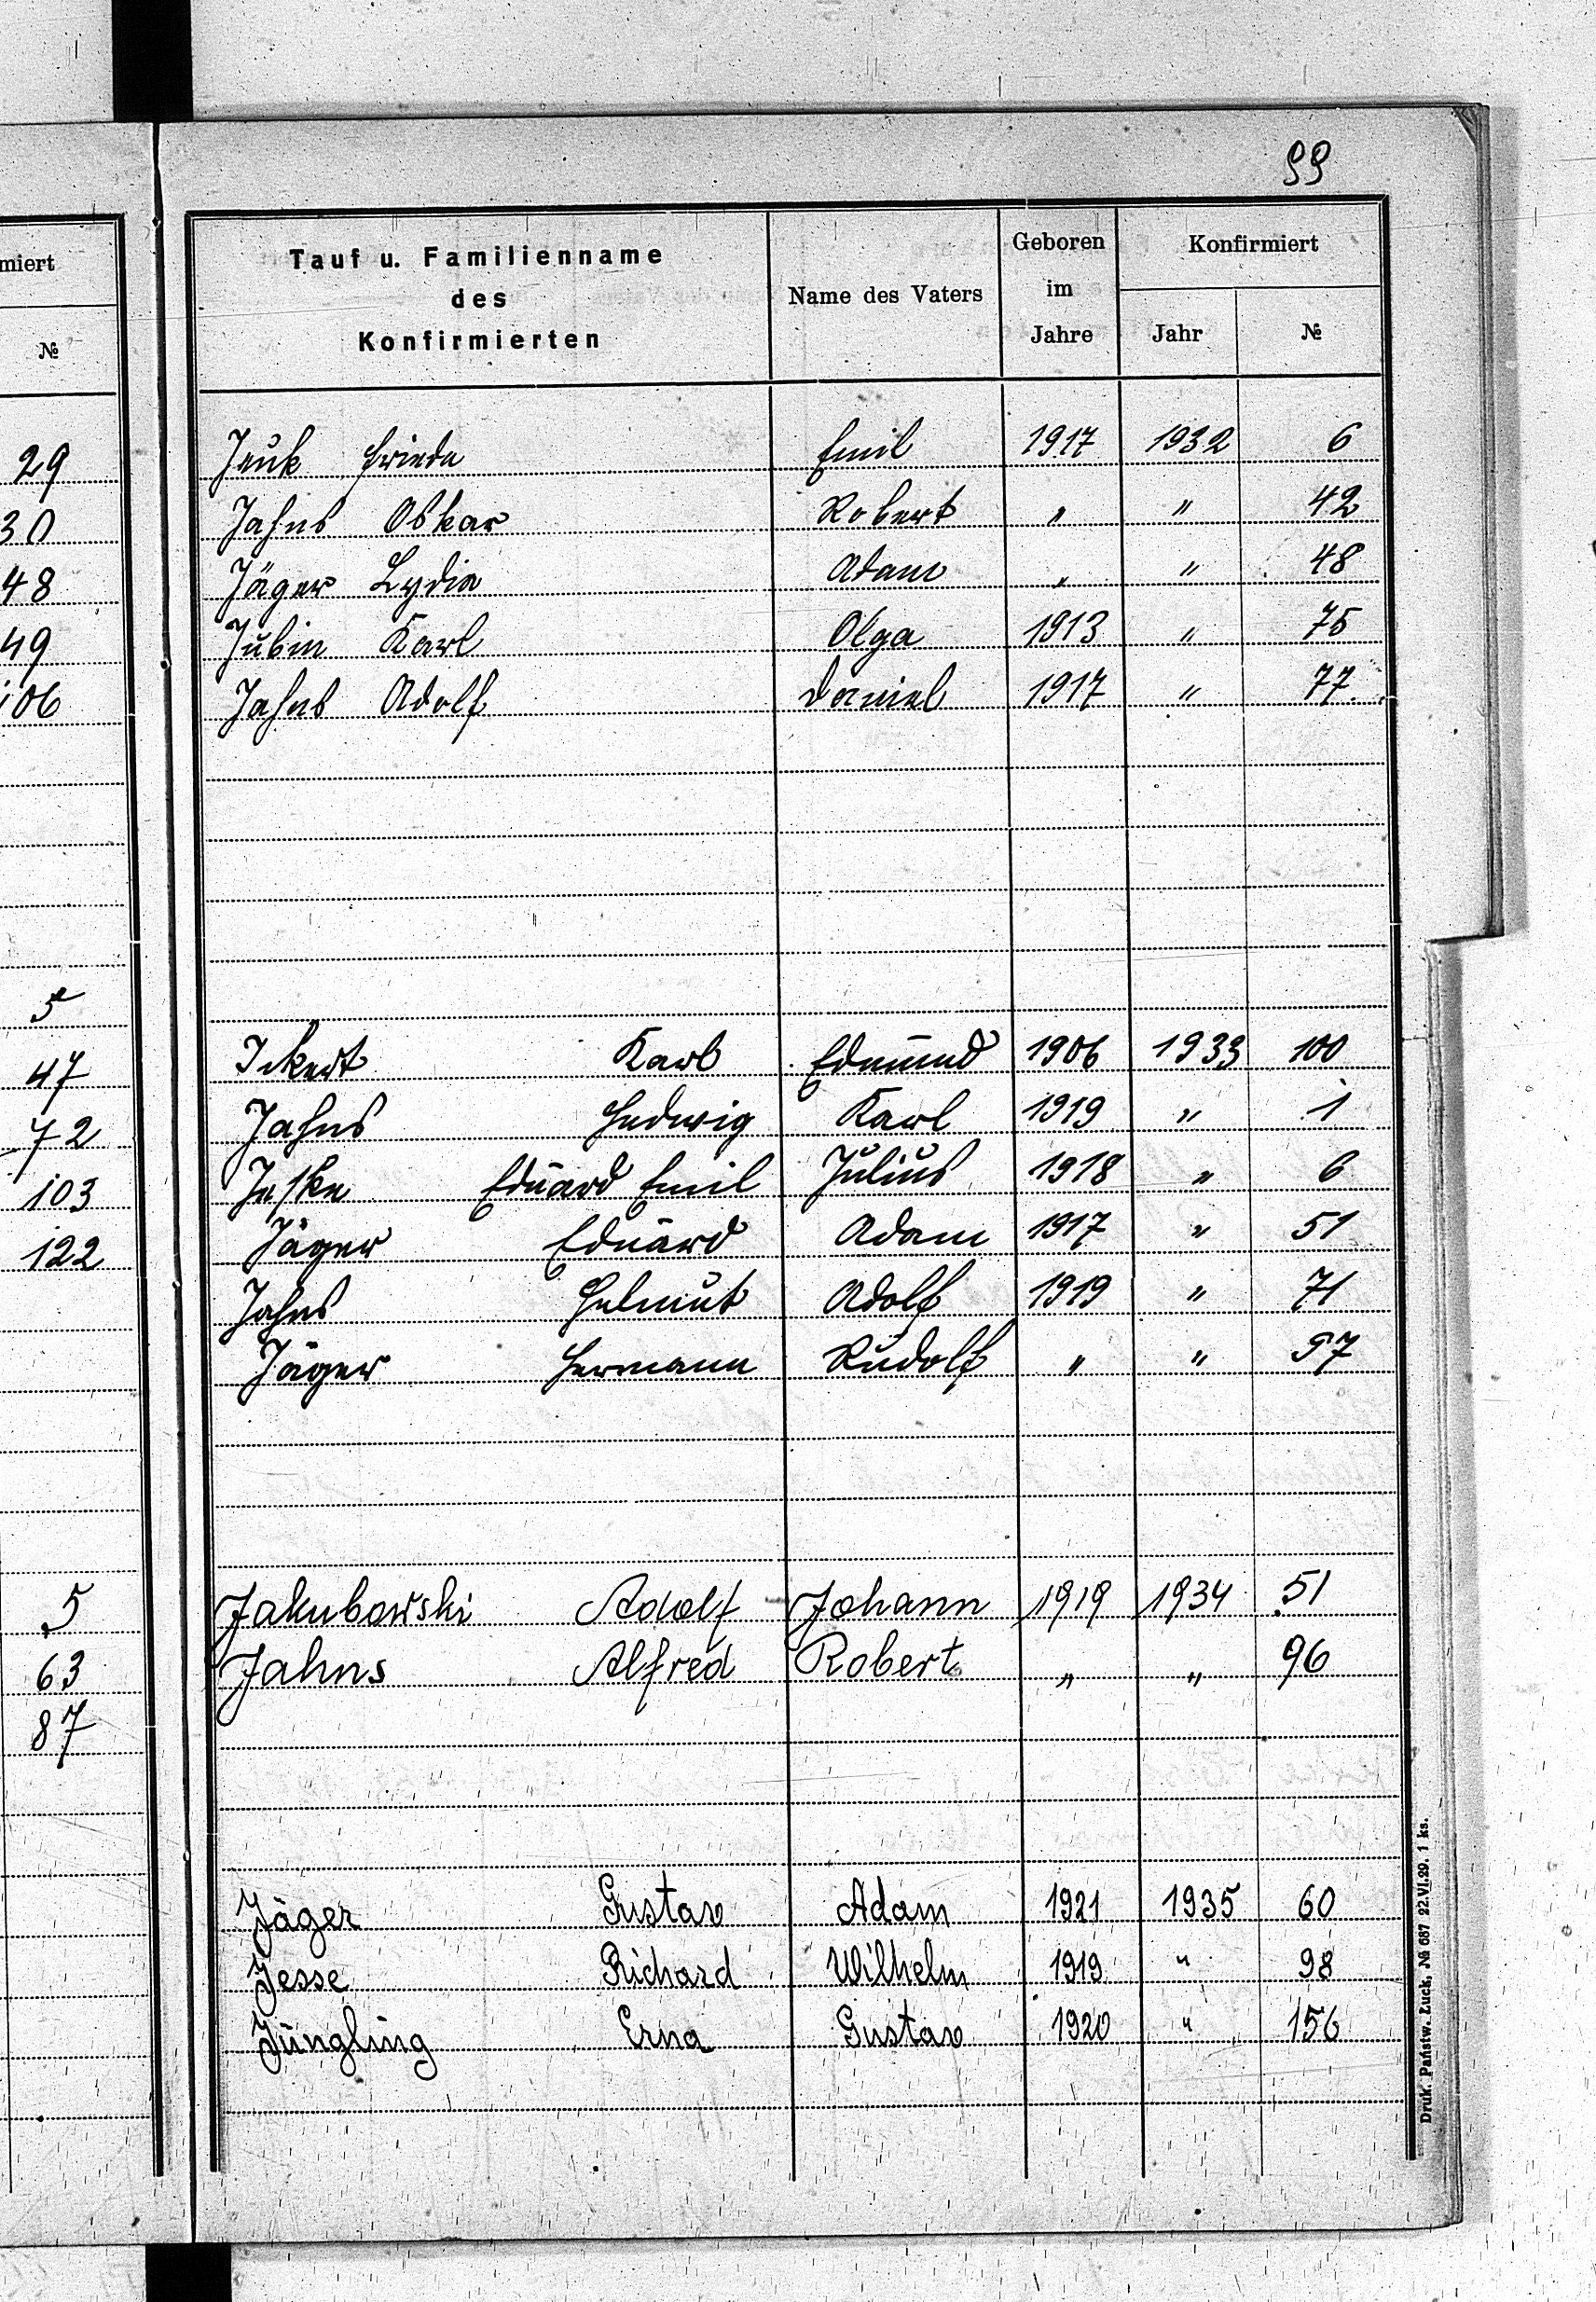 99
miert
№
29
30
48
49
106
5
47
72
103
122
5
63
87
Tauf u. Familienname des Konfirmierten Name des Vaters Geboren im Jahre Konfirmiert Jahr №
Jeuk Frieda Emil 1917 1932 6
Jahns Oskar Robert " " 42
Jäger Lydia Adam " " 48
Jubin Karl Olga 1913 " 75
Jahns Adolf Daniel 1917 " 77
Ickert Karl Edmund 1906 1933 100
Jahns Hedwig Karl 1919 " 1
Jeske Eduard Emil Julius 1918 " 6
Jäger Eduard Adam 1917 " 51
Jahns Helmut Adolf 1919 " 71
Jäger Hermann Rudolf " " 97
Jakubowski Adolf Johann 1919 1934 51
Jahns Alfred Robert " " 96
Jäger Gustav Adam 1921 1935 60
Jesse Richard Wilhelm 1919 " 98
Jüngling Erna Gustav 1920 " 156
Druk. Państw. Łuck, № 687 22.VI.29. 1 ks.